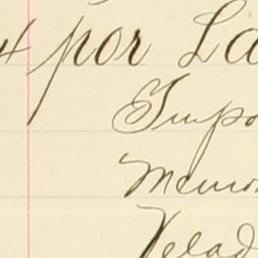 por La
Impo
Memo
Velad